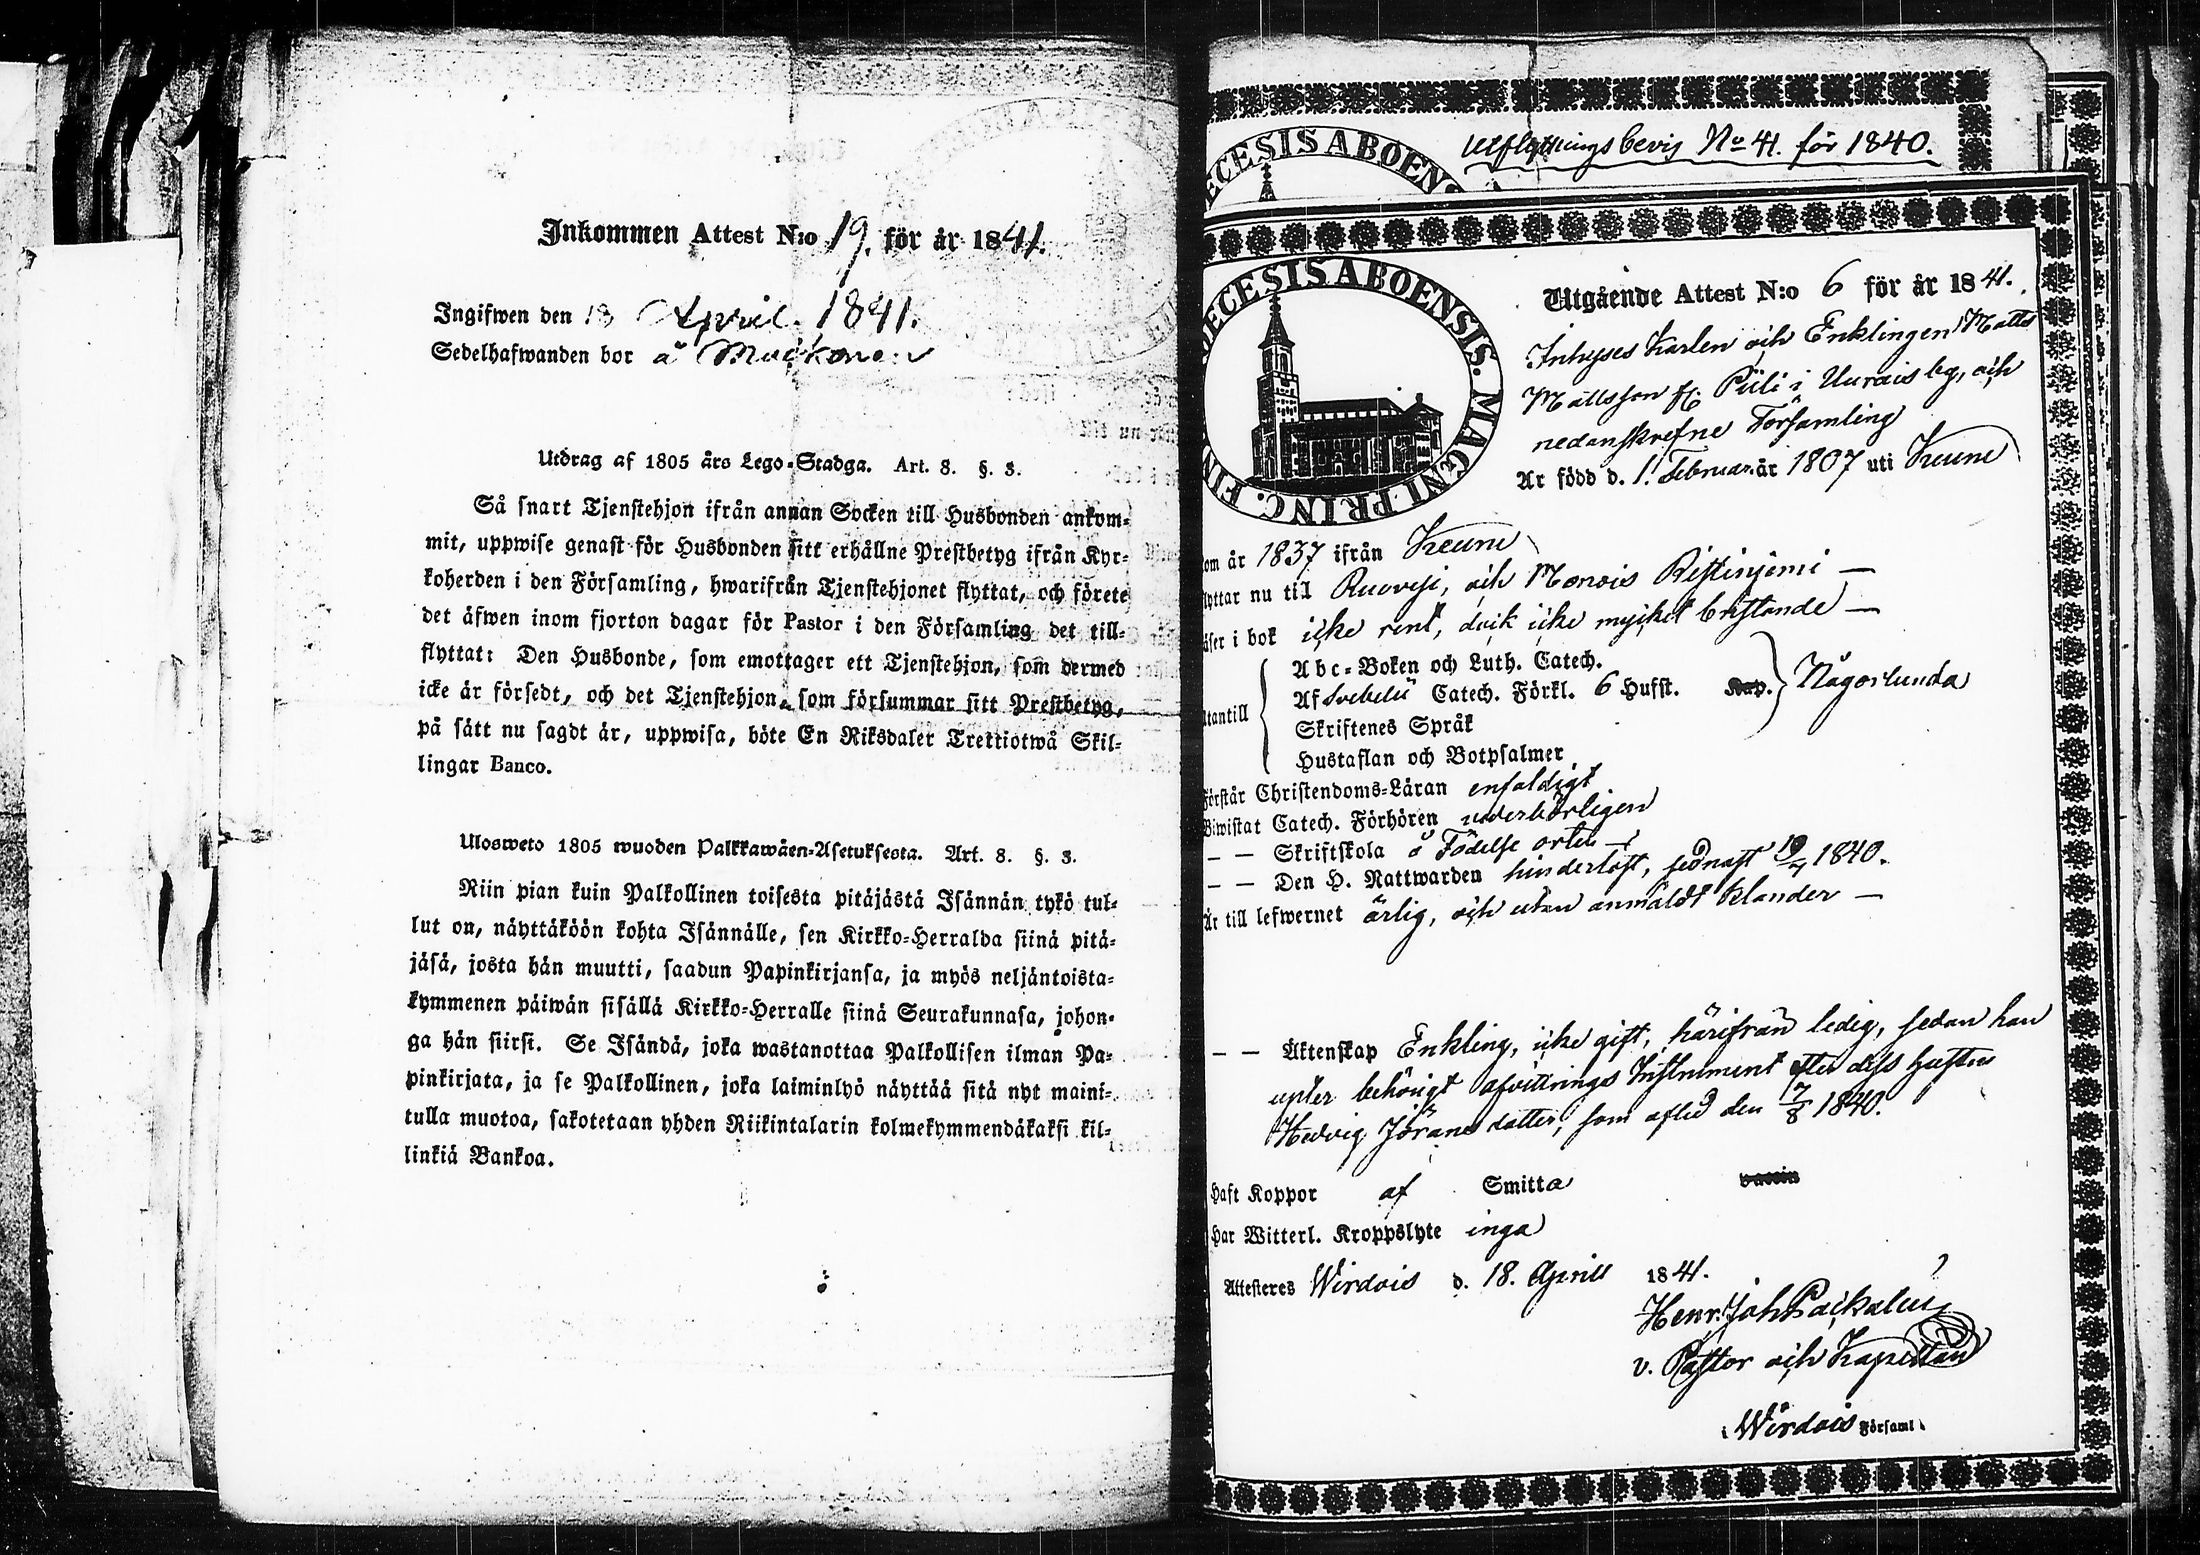 Inkommen Attest N:o 19. för år 1841.
Ingifwen den 18 April. 1841.
Sedelhafwanden bor å
Utdrag af 1805 års Lego-Stadga. Art. 8. §. 3.
Så snart Tjenstehjon ifrån annan Socken till Husbonden ankom-
mit, uppwise genast för Husbonden sitt erhållne Prestbetyg ifrån Kyr-
koherden i den Församling, hwarifrån Tjenstehjonet flyttat, och förete
det äfwen inom fjorton dagar för Pastor i den Församling det till-
flyttat: Den Husbonde, som emottager ett Tjenstehjon, som dermed
icke är försedt, och det Tjenstehjon, som försummar sitt Prestbetyg,
på sätt nu sagdt är, uppwisa, böte En Riksdaler Trettiotwå Skil-
lingar Banco.
Ulosweto 1805 wuoden Palkkawäen-Asetuksesta. Art. 8. §. 3.
Niin pian kuin Palkollinen toisesta pitäjästä Isännän tykö tul-
lut on, näyttäköön kohta Isännälle, sen Kirkko-Herralda siinä pitä-
jäsä, josta hän muutti, saadun Papinkirjansa, ja myös neljäntoista-
kymmenen päiwän sisällä Kirkko-Herralle siinä Seurakunnasa, johon-
ga hän siirsi. Se Isändä, joka wastanottaa Palkollisen ilman Pa-
pinkirjata, ja se Palkollinen, joka laiminlyö näyttää sitä nyt maini-
tulla muotoa, sakotetaan yhden Riikintalarin kolmekymmendäkaksi kil-
linkiä Bankoa.
Utflyttningsbevis No 41. för 1840.
ECESIS ABOENS
DECESIS ABOENSIS. MAGNI PRINC. FIN
Utgående Attest N:o 6 för år 1841.
Inhyses Karlen och Enklingen Matts
Mattsson fr. Piili i Uurais by, och
nedanskrefne Församling
Är född d. 1. Februar. år 1807 uti Keuru
om år 1837 ifrån Keuru
lyttar nu till Ruovesi, och Monois Ristinjemi —
äser i bok icke rent, dock icke mycket bristande —
Abc-Boken och Luth. Catech.
Af Svebelii Catech. Förkl. 6 Hufst. Kap. Någorlunda
tantill
Skriftenes Språk
Hustaflan och Botpsalmer
Förstår Christendoms-Läran enfaldigt
Biwistat Catech. Förhören vederbörligen
— — Skriftskola å Födelse orten
— — Den H. Nattwarden hinderlöst, sednast 19/7 1840.
Är till lefwernet ärlig, och utan anmäldt klander —
— — Äktenskap Enkling, icke gift, härifrån ledig, sedan han
upter behörigt afvittrings Instrument efter dess hustru
Hedvig Jörans dotter, som afled den 7/8 1840.
Haft Koppor af Smitta vaccin
Har Witterl. Kroppslyte inga
Attesteres Wirdois d. 18. Aprill 1841.
Henr. Joh Packalen
v. Pastor och Kapellan
i Wirdois Församl.